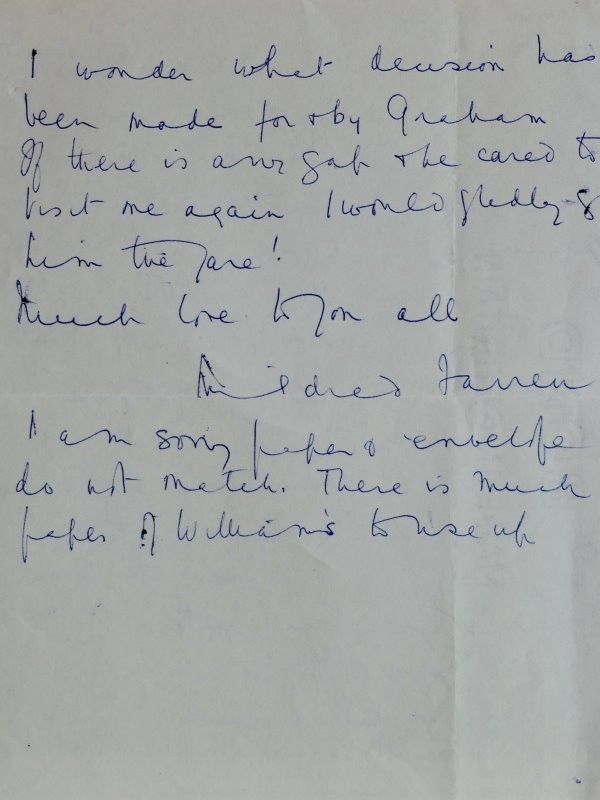 I wonder what decision has
been made for & by Graham
If there is any gap & he cared to
visit me again I would gladly
him the fare!
Much love to you all
Mildred Farren
I am sorry paper & envelope
do not match. There is much
paper of William's to use up